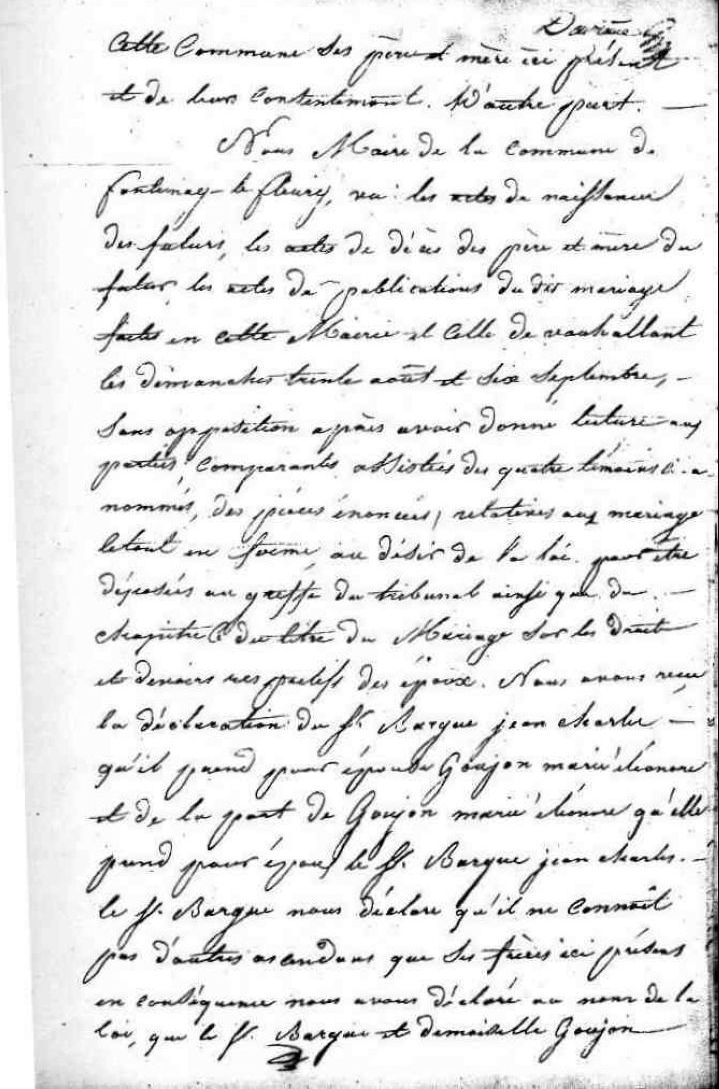 Douzième
Cette Commune ses père et mère ici présent
et de leurs contentement. D'autre part. —
Nous Maire de la commune de
fontenay-le fleury, vu les actes de naissance
des futurs, les actes de décès des père et mère du
futur, les actes de publications du dit mariage
faites en cette Mairie et Celle de vauhallant
les dimanches trente août et Six Septembre, -
Sans opposition après avoir donné lecture aux
parties, comparantes assistées des quatre témoins ci-a
nommés, des pièces énoncées, relatives aux mariage
le tout en forme au désir de la loi pour être
déposées au greffe du tribunal ainsi que du —
chapitre 6 du titre du Mariage Sur les droits
et devoirs respectifs des époux. Nous avons reçu
la déclaration du Sr. Bargue jean charles —
qu'il prend pour épouse Goujon marie éléonore
et de la part de Goujon marie éléonore qu'elle
prend pour époux le Sr. Bargue jean charles. -
le Sr. Bargue nous déclare qu'il ne connaît
pas d'autres ascendans que Ses frères ici présens
en conséquence nous avons déclaré au nom de la
loi, que le Sr. Bargue et demoiselle Goujon —